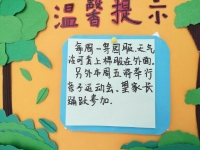 温馨提示
每周一穿园服,天气
冷可套上棉服在外面.
另外本周五将举行
亲子运动会,望家长
踊跃参加.